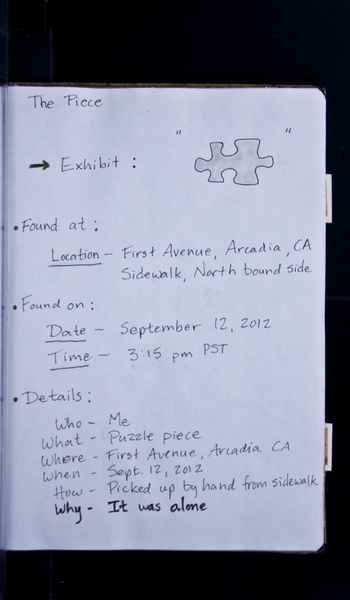 The Piece
" "
→ Exhibit :
• Found at :
Location – First Avenue, Arcadia, CA
Sidewalk, North bound side
• Found on :
Date – September 12, 2012
Time – 3:15 pm PST
• Details :
Who – Me
What – Puzzle piece
Where – First Avenue, Arcadia CA
When – Sept. 12, 2012
How – Picked up by hand from sidewalk
Why – It was alone